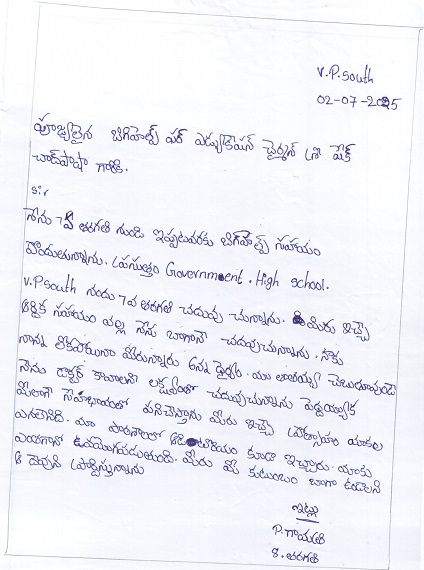 V.P.South
02-07-2025
పూజ్యులైన బిగ్‌హెల్ప్ ఫర్ ఎడ్యుకేషన్ ఛైర్మన్ శ్రీ షేక్
చాంద్‌పాషా గారికి.
Sir
నేను 7వ తరగతి నుండి ఇప్పటవరకు బిగ్‌హెల్ప్ సహాయం
పొందుతున్నాను. ప్రస్తుతం Government. High school.
V.P South నందు 7వ తరగతి చదువు చున్నాను. మీరు ఇచ్చే
ఆర్థిక సహాయం వల్ల నేను బాగానే చదువుచున్నాను. నాకు
నాన్న లేకపోయినా మీరున్నారు అన్న ధైర్యం. మా తాతయ్య చెబుతూవుంటె
నేను డాక్టర్ కావాలనే లక్ష్యంతో చదువుచున్నాను పెద్దయ్యాక
మీలాగే సేవాభావంతో పనిచేస్తాను మీరు ఇచ్చే ప్రోత్సాహం మాకు
ఎనలేనిది. మా పాఠశాలలో కూడా ఇచ్చారు. మాకు
ఎంతగానో ఉపయోగపడుతుంది. మీరు మీ కుటుంబం బాగా ఉండాలని
ఆ దేవుని ప్రార్థిస్తున్నాను
ఇట్లు
P.గాయత్రి
8. తరగతి